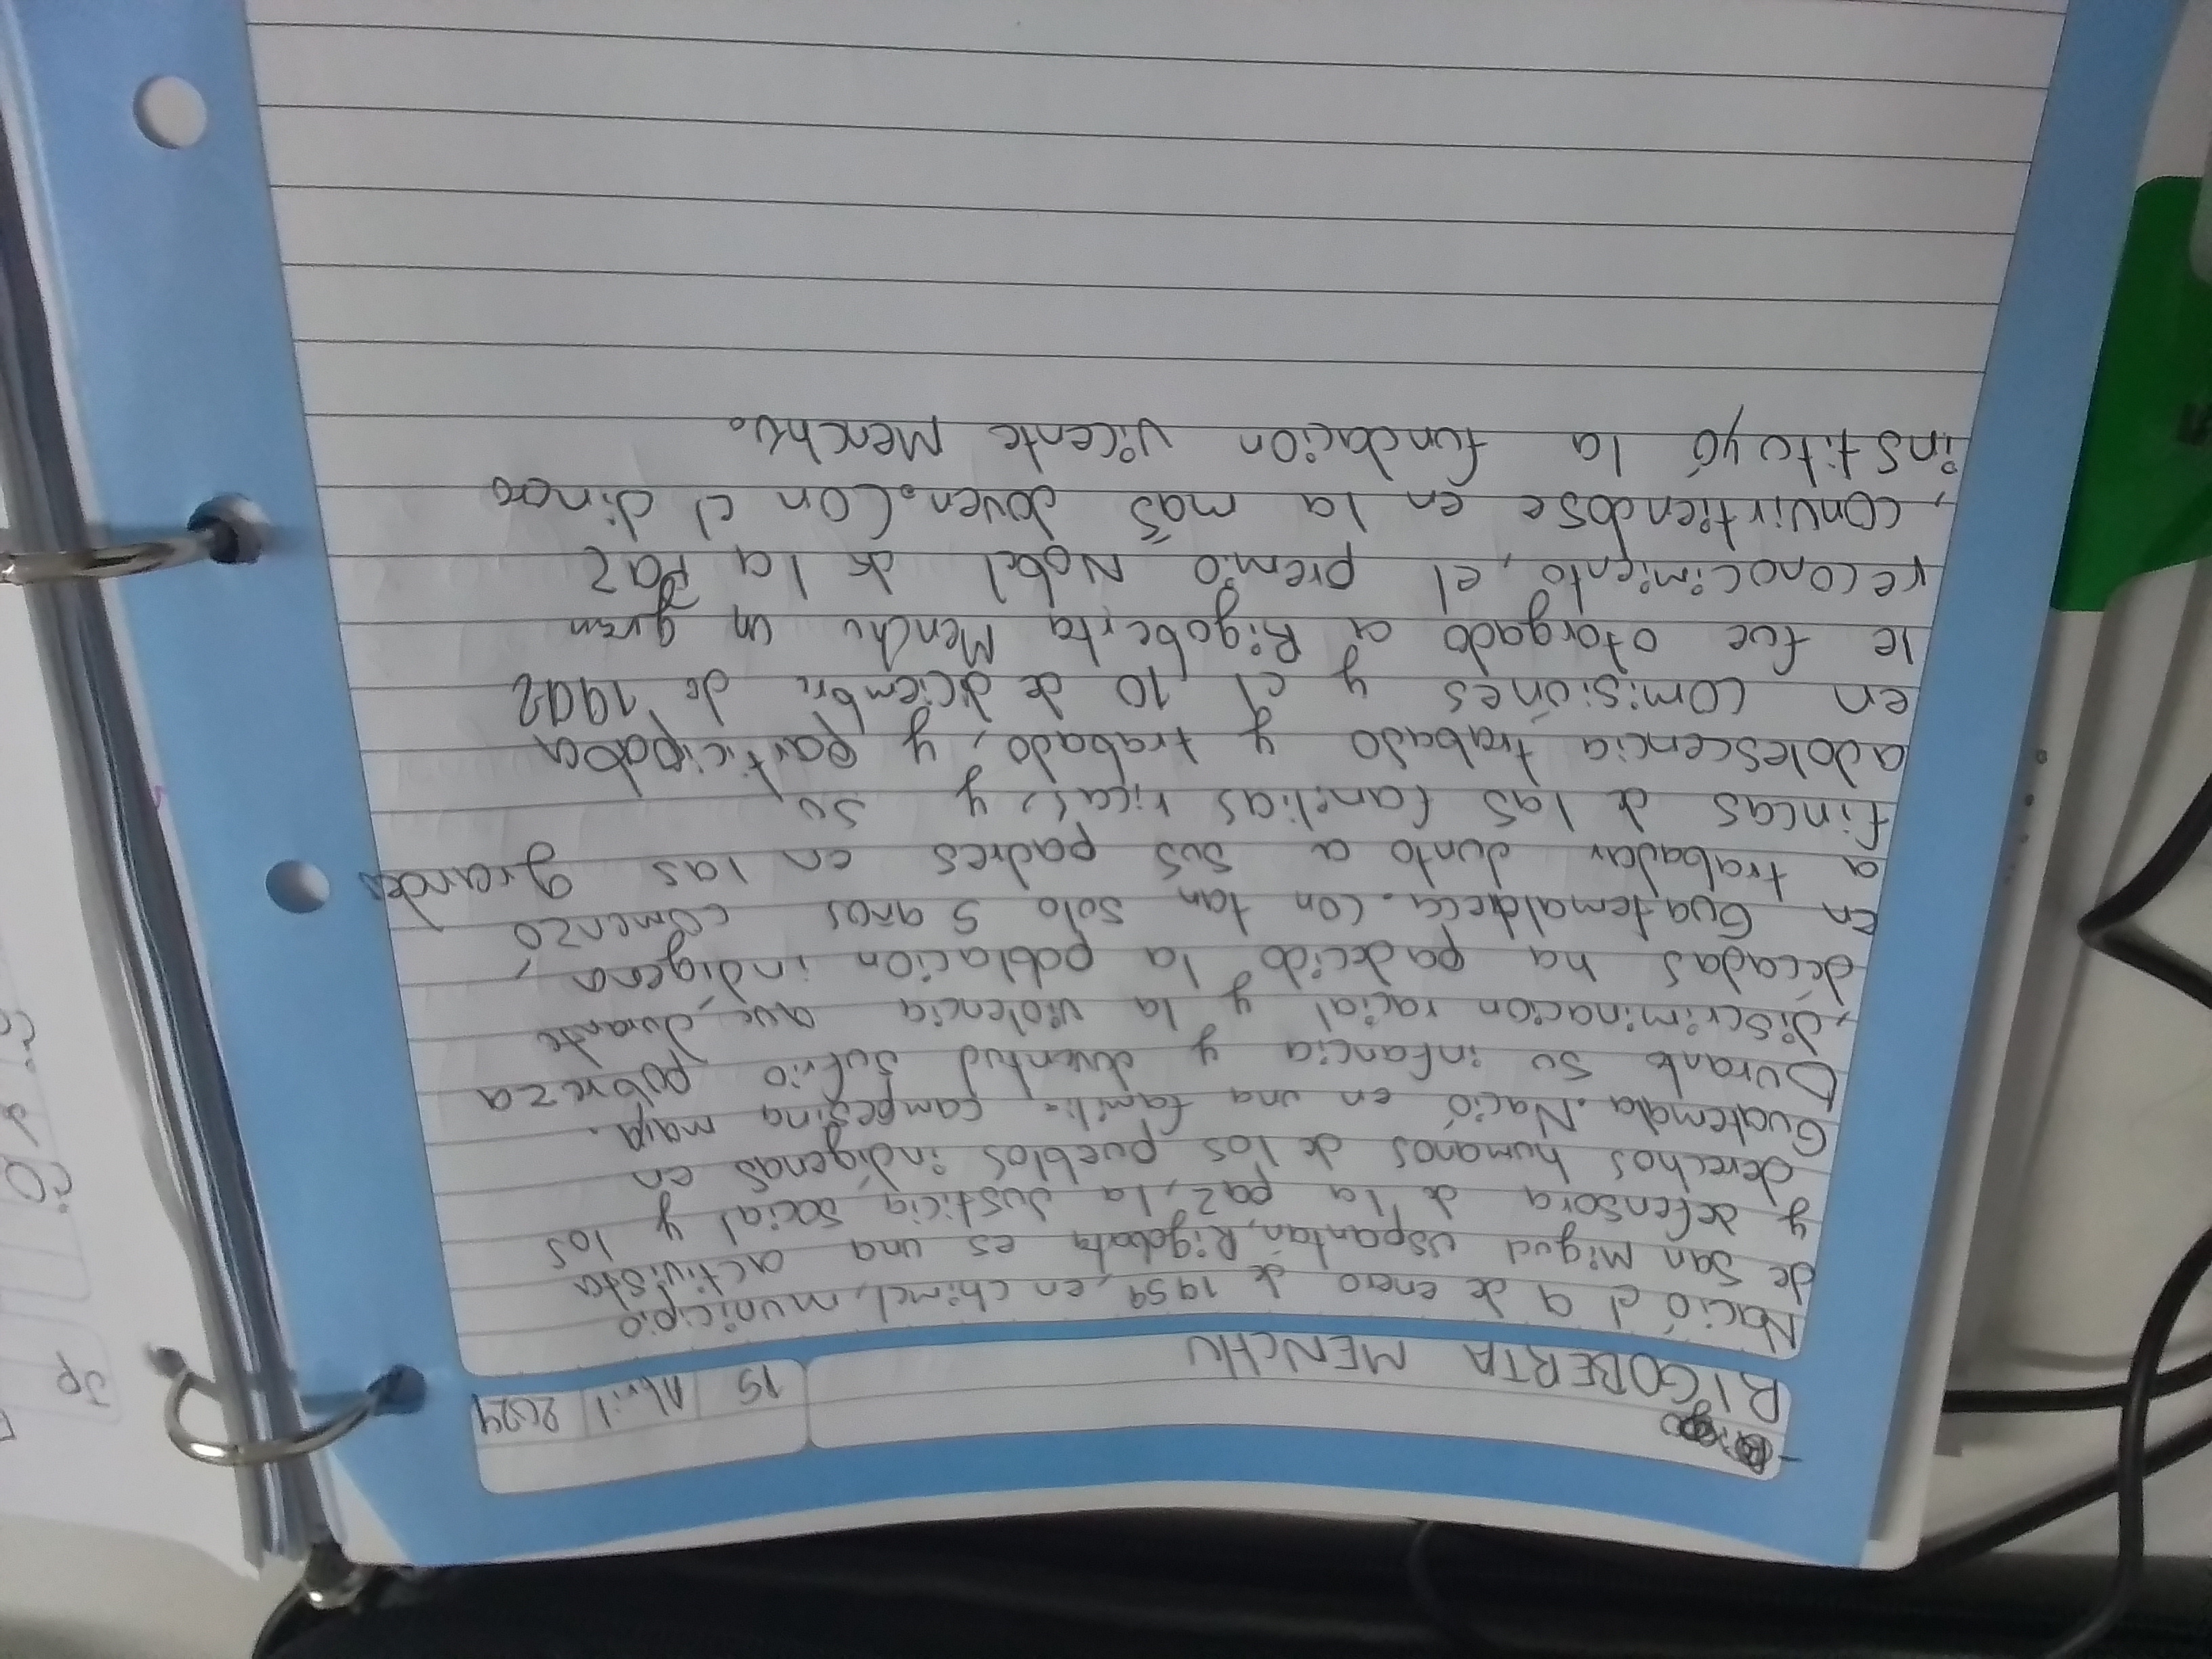 RIGOBERTA MENCHU
15 Abril 2024
Nació el 9 de enero de 1959, en chimel, municipio
de San Miguel uspantán, Rigoberta es una activista
y defensora de la paz, la Justicia social y los
derechos humanos de los pueblos indígenas en
Guatemala. Nació en una familia campesina maya.
Durante su infancia y Juventud sufrio pobreza
, discriminacion racial y la violencia que durante
décadas ha padecido la poblacion indígena,
en Guatemaldeca. con tan solo 5 años comenzó
a trabajar Junto a sus padres en las grandes
fincas de las familias ricas, y su
adolescencia trabajo y trabajo, y participaba
en comisiones y el 10 de diciembre de 1992
le fue otorgado a Rigoberta Menchu un gran
reconocimiento, el premio Nobel de la Paz
, convirtiendose en la mas Joven. Con el dinero
instituyó la fundacion Vicente Menchu.